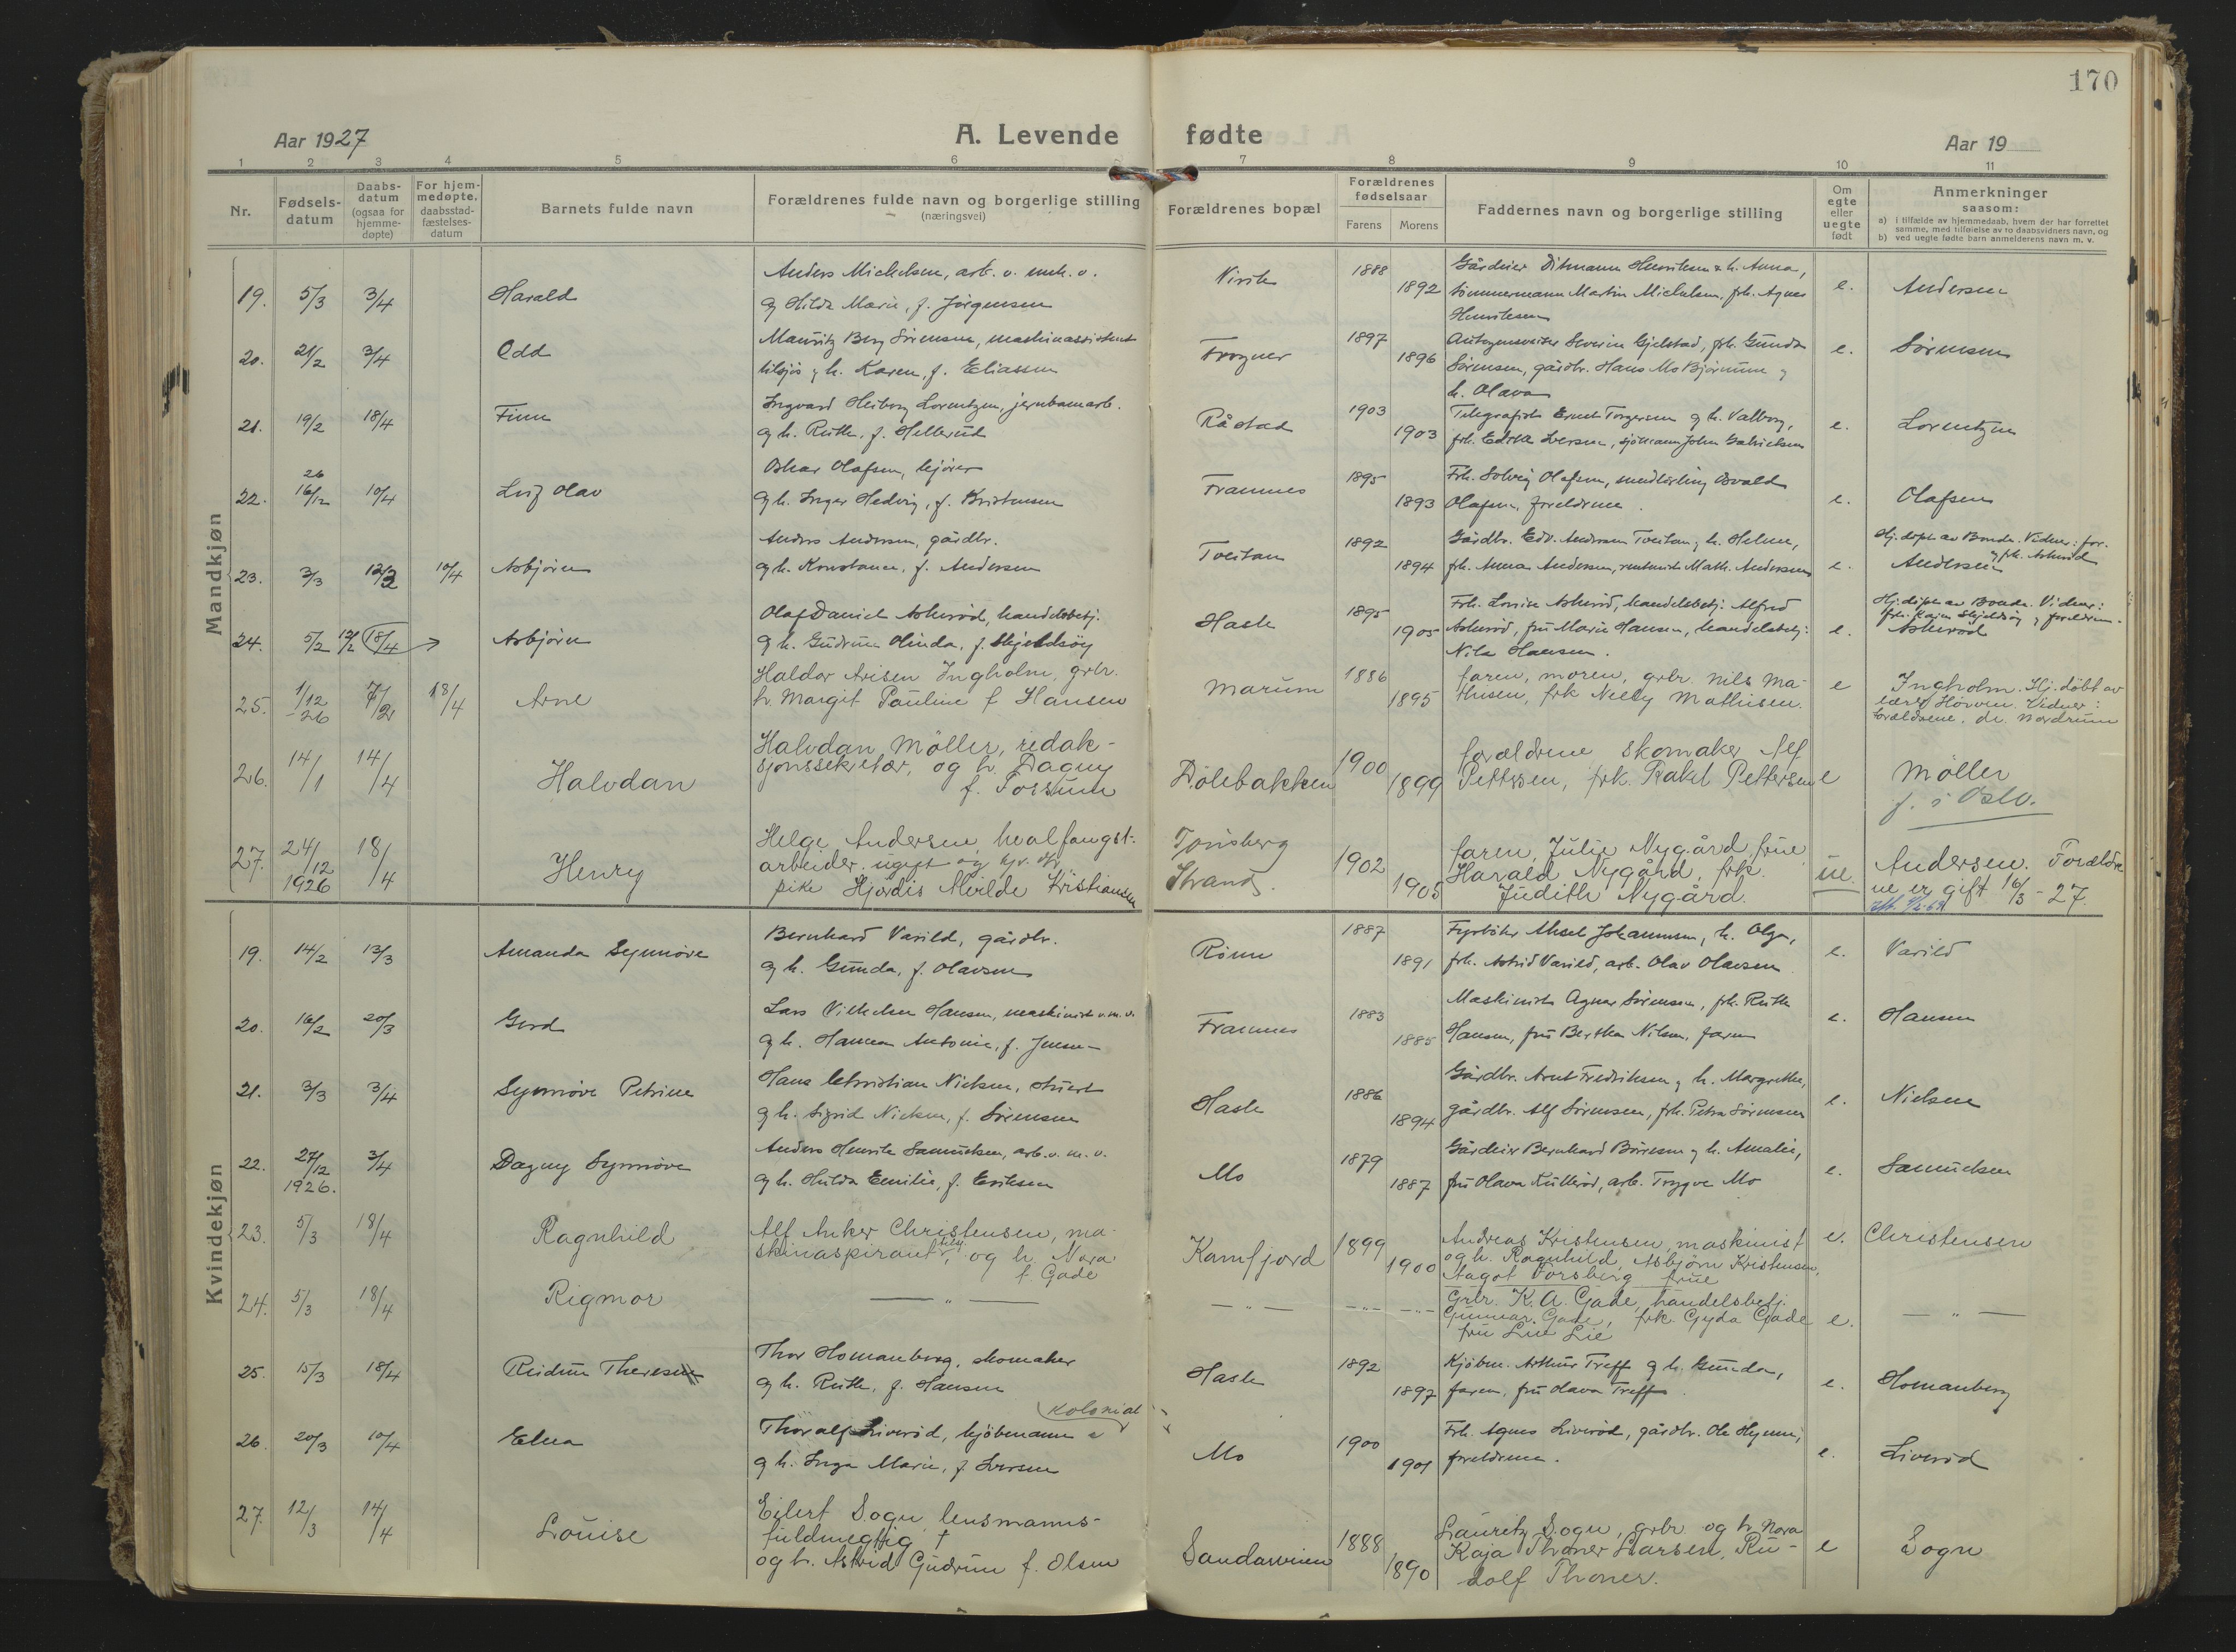 170
Aar 1927
A. Levende fødte
Aar 19
1 2 3 4 5 6 7 8 9 10 11
Nr.
Fødselsdatum
Daabsdatum (ogsaa for hjemmedøpte)
For hjemmedøpte, daabsstadfæstelsesdatum
Barnets fulde navn
Forældrenes fulde navn og borgerlige stilling
(næringsvei)
Forældrenes bopæl
Forældrenes fødselsaar
Farens Morens
Faddernes navn og borgerlige stilling
Om egte eller uegte født
Anmerkninger
saasom:
a) i tilfælde av hjemmedaab, hvem der har forrettet samme, med tilføielse av to daabsvidners navn, og
b) ved uegte fødte barn anmelderens navn m. v.
Mandkjøn
19. 5/3 3/4 Harald
Anders Michelsen, arb. v.
og Hilda Marie, f. Jørgensen
1888 1892
Gårdeier Ditmann Henriksen & h. Anna,
tømmermann Martin Michelsen, frk. Agnes
Henriksen
e. Andersen
20. 21/2 3/4 Odd
Mauritz Berg Sørensen, maskinassistent
tilsjøs og h. Karen, f. Eliassen
Frogner 1897 1896
Severin Gjelstad, frk. Gunda
Sørensen, gårdbr. Hans Mo Bjørnum og
h. Olava
e. Sørensen
21. 19/2 18/4 Finn
Ingvard Heiberg Lorentzen, jernbanearb.
og h. Ruth, f. Hellerud
Råstad 1903 1903
Telegrafist Ernst Torgersen og h. Valborg,
frk. Edith Iversen, sjømann John Gabrielsen
e. Lorentzen
22. 26 16/12 10/4 Leif Olav
Oskar Olafsen, kjører
og h. Inger Hedvig, f. Kristensen
Framnes 1895 1893
Frk. Solveig Olafsen, smedlærling Osvald
Olafsen, foreldrene.
e. Olafsen
23. 3/3 10/4 Asbjørn
Anders Andersen, gårdbr.
og h. Konstance, f. Andersen
Tveitan 1892 1894
Gårdbr. Edv. Andersen Tveitan og h. Helene,
frk. Anna Andersen, Math. Andersen
e. Andersen
Hj. døpt av Vidner: for.
og frk. Askerød
24. 5/2 12/2 18/4 Asbjørn
Olaf Daniel Askerød, handelsbetj.
og h. Gudrun Olinda, f. Skjeldsøy
Hasle 1895 1905
Frk. Lovise Askerød, handelsbetj. Alfred
Askerød, fru Marie Hansen, handelsbetj:
Nils Hansen.
e. Askerød
Hj. døpt av Vidner:
frk. Kajen Skjeldsøy og foreldrene.
25. 1/12 -26 7/2 18/4 Arne
Haldor Arisen Ingholm, grbr.
h. Margit Pauline f Hansen
Marum 1886 1895
faren, moren, grbr. Nils Ma-
thisen, frk Nelly Mathisen.
e Ingholm. Hj. døbt av
lærer Horven. Vidner:
forældrene. de. Nordrum
26. 14/1 14/4 Halvdan
Halvdan Møller, redak-
sjonssekretær, og h. Dagny
f. Fossum
Dølebakken 1900 1899
forældrene skomaker Alf
Pettersen, frk. Rakel Pettersen
e Møller
f. i Oslo.
27. 24/12 1926 18/4 Henry
Helge Andersen hvalfangst-
arbeider ugift og
pike Hjørdis Alvilde Kristiansen
Tønsberg
Strand. 1902 1905
faren, Julie Nygård frue
Harald Nygård, frk.
Judith Nygård.
ue. Andersen. Foreldre
ne er gift 16/3 - 27.
Kvindekjøn
19. 14/2 13/3 Amanda Synnøve
Bernhard Varild, gårdbr.
og h. Gunda, f. Olavsen
Rønn 1887 1891
Fyrbøter Aksel Johannesen, h. Olga,
frk. Astrid Varild, arb. Olav Olavsen
e. Varild
20. 16/2 20/3 Gerd
Lars Vilhelm Hansen, maskinist v. m. v.
og h. Hanna Antonie, f. Jensen
Framnes 1883 1885
Maskinist Agnar Sørensen, frk. Ruth
Hansen, fru Bertha Nilsen, faren
e. Hansen
21. 3/3 3/4 Synnøve Petrine
Hans Christian Nielsen, stuert
og h. Sigrid Nielsen, f. Sørensen
Hasle 1886 1894
Gårdbr. Arnt Fredriksen og h. Margrethe,
gårdbr. Alf Sørensen, frk. Petra Sørensen
e. Nielsen
22. 27/12 1926. 3/4 Dagny Synnøve
Anders Henrik Samuelsen, arb. v. m. v.
og h. Hulda Emilie, f. Eriksen
Mo 1879 1887
Gårdeier Bernhard Børresen og h. Amalie,
fru Olava Kullerød, arb. Trygve Mo
e. Samuelsen
23. 5/3 18/4 Ragnhild
Alf Anker Christensen, ma-
skinaspirant, og h Nora
f. Gade
Kamfjord 1899 1900
Andreas Kristensen maskinist
og h. Ragnhild, Asbjørn Kristensen,
Aagot Forsberg frue
e. Christensen
24. 5/3 18/4 Rigmor
— " —
— " — — " — — " —
Grbr. K. A. Gade, handelsbetj.
Gunnar Gade, frk. Gyda Gade
fru Lie
e. — " —
25. 15/3 18/4 Reidun Therese
Thor Homanberg, skomaker
og h. Ruth, f. Hansen
Hasle 1892 1897
Kjøbm. Arthur Treff og h. Gunda,
faren, fru Olava Treff.
e. Homanberg
26. 20/3 10/4 Elna
kolonial
Thoralf Liverød, kjøbmann
og h. Inga Marie, f. Iversen
Mo 1900 1901
Frk. Agnes Liverød, gårdbr. Ole Hynne,
foreldrene.
e. Liverød
27. 12/3 14/4 Louise
Eilert Sogn lensmanns-
fuldmegtig †
og h. Astrid Gudrun f. Olsen
Sandarveien 1888 1890
Lauretz Sogn, grbr og h Nora
Kaja Thoner Larsen, Ru-
dolf Thoner.
e Sogn